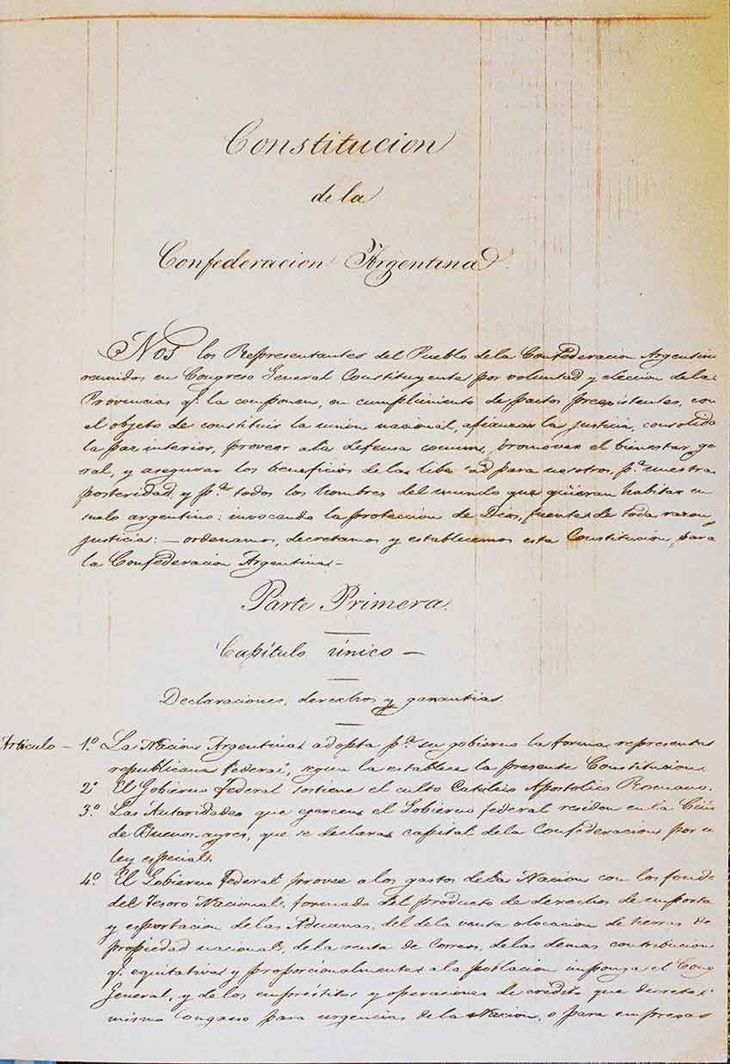 Constitucion
de la
Confederacion Argentina
Nos los Representantes del Pueblo de la Confederacion Argentin
reunidos en Congreso General Constituyente por voluntad y eleccion de las
Provincias q.e la componen, en cumplimiento de pactos preexistentes, con
el objeto de constituir la union nacional, afianzar la justicia, consolida
la paz interior, proveer a la defensa comun, promover el bienestar ge
ral, y asegurar los beneficios de la libertad para nosotros, p.a nuestra
posteridad, y p.a todos los hombres del mundo que quieran habitar en
suelo argentino: invocando la proteccion de Dios, fuente de toda razon
justicia: — ordenamos, decretamos y establecemos esta Constitucion, para
la Confederacion Argentina —
Parte Primera.
Capítulo único —
Declaraciones, derechos y garantias
Articulo — 1.º La Nacion Argentina adopta p.a su gobierno la forma representa
republicana federal, segun la establece la presente Constitucion.
2.º El Gobierno Federal sostiene el culto Catolico Apostolico Romano.
3.º Las Autoridades que ejercen el Gobierno federal residen en la Ciu
de Buenos-ayres, que se declara capital de la Confederacion por u
ley especial.
4.º El Gobierno Federal provee a los gastos de la Nacion con los fondo
del Tesoro Nacional, formado del producto de derechos de importa
y esportacion de las Aduanas, del de la venta o locacion de tierras de
propiedad nacional, de la renta de Correos, de las demas contribucion
q.e equitativa y proporcionalmente a la poblacion imponga el Cong
General, y de los empréstitos y operaciones de crédito que decrete
mismo Congreso para urgencias de la Nacion, o para empresas